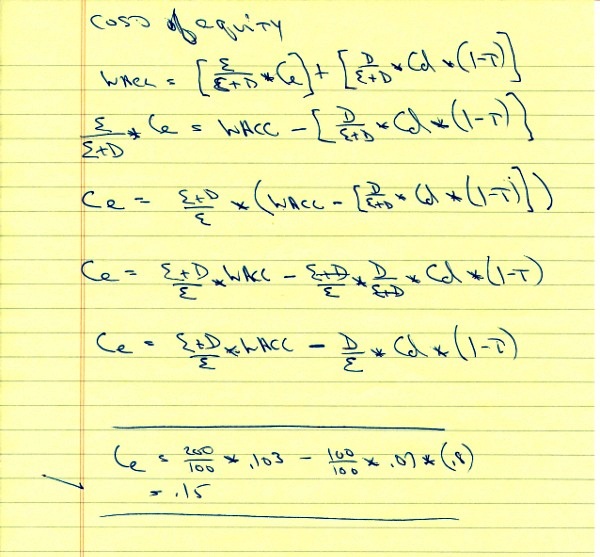 Cost of equity
WACC = [E/E+D * Ce] + [D/E+D * Cd * (1-T)]
E/E+D * Ce = WACC - [D/E+D * Cd * (1-T)]
Ce = E+D/E * (WACC - [D/E+D * Cd * (1-T)])
Ce = E+D/E * WACC - E+D/E * D/E+D * Cd * (1-T)
Ce = E+D/E * WACC - D/E * Cd * (1-T)
Ce = 200/100 * .103 - 100/100 * .07 * (.8)
= .15